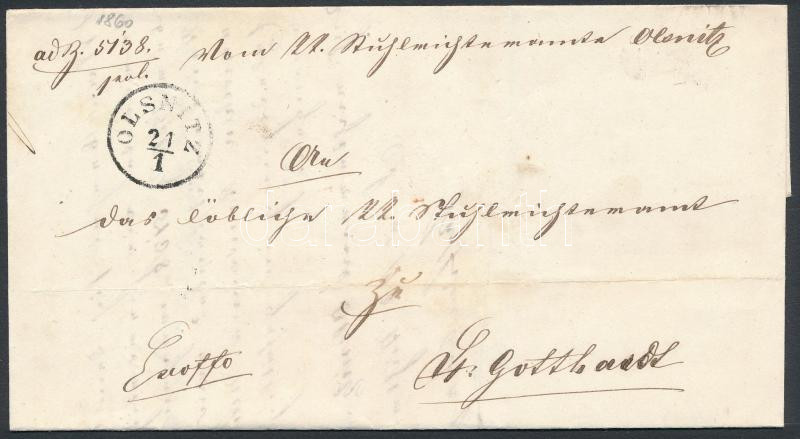 1860
ad Z. 5138.
pol.
Vom KK. Stuhlrichteramte Olsnitz
OLSNITZ
21
1
An
das löbliche KK. Stuhlrichteramt
darabanth
zu
Exoffo
St. Gotthardt